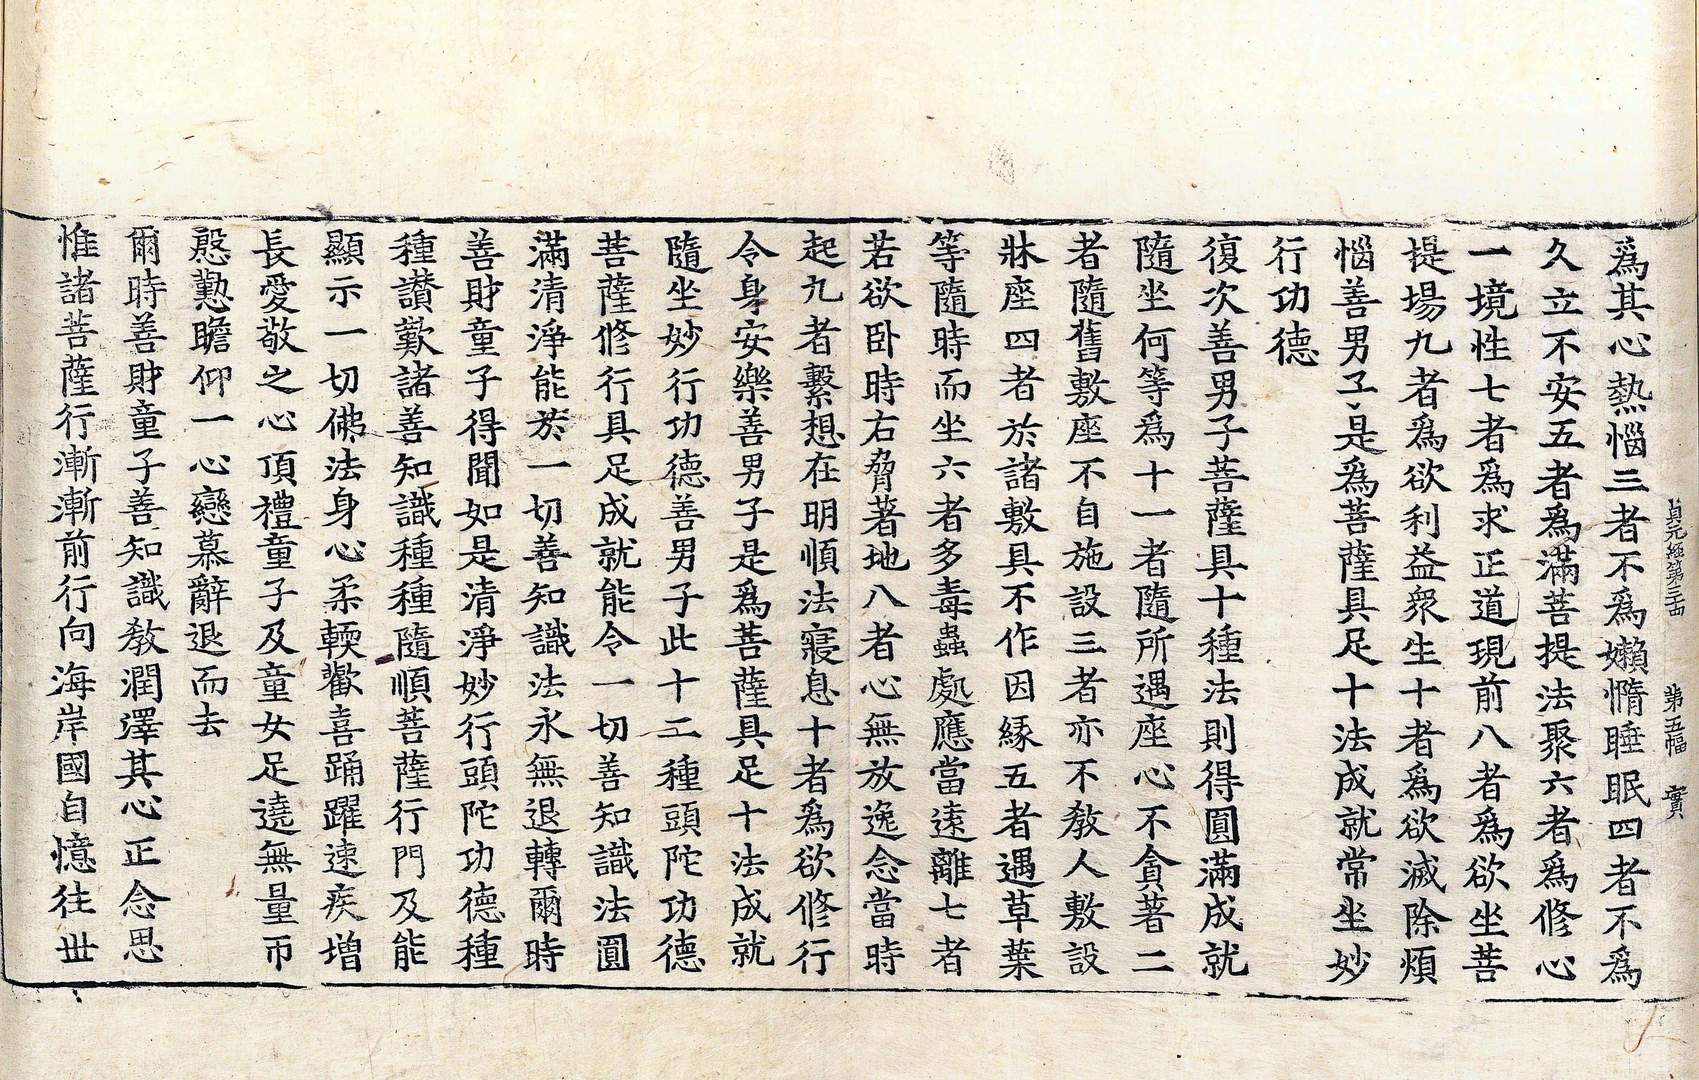 貞元經第三十四　第五幅　實
爲其心熱惱三者不爲懶惰睡眠四者不爲
久立不安五者爲滿菩提法聚六者爲修心
一境性七者爲求正道現前八者爲欲坐菩
提場九者爲欲利益衆生十者爲欲滅除煩
惱善男子是爲菩薩具足十法成就常坐妙
行功德
復次善男子菩薩具十種法則得圓滿成就
隨坐何等爲十一者隨所遇座心不貪著二
者隨舊敷座不自施設三者亦不教人敷設
牀座四者於諸敷具不作因緣五者遇草葉
等隨時而坐六者多毒蟲處應當遠離七者
若欲卧時右脅著地八者心無放逸念當時
起九者繫想在明順法寢息十者爲欲修行
令身安樂善男子是爲菩薩具足十法成就
隨坐妙行功德善男子此十二種頭陀功德
菩薩修行具足成就能令一切善知識法圓
滿清淨能於一切善知識法永無退轉爾時
善財童子得聞如是清淨妙行頭陀功德種
種讚歎諸善知識種種隨順菩薩行門及能
顯示一切佛法身心柔輭歡喜踊躍速疾增
長愛敬之心頂禮童子及童女足遶無量帀
慇懃瞻仰一心戀慕辭退而去
爾時善財童子善知識教潤澤其心正念思
惟諸菩薩行漸漸前行向海岸國自憶往世